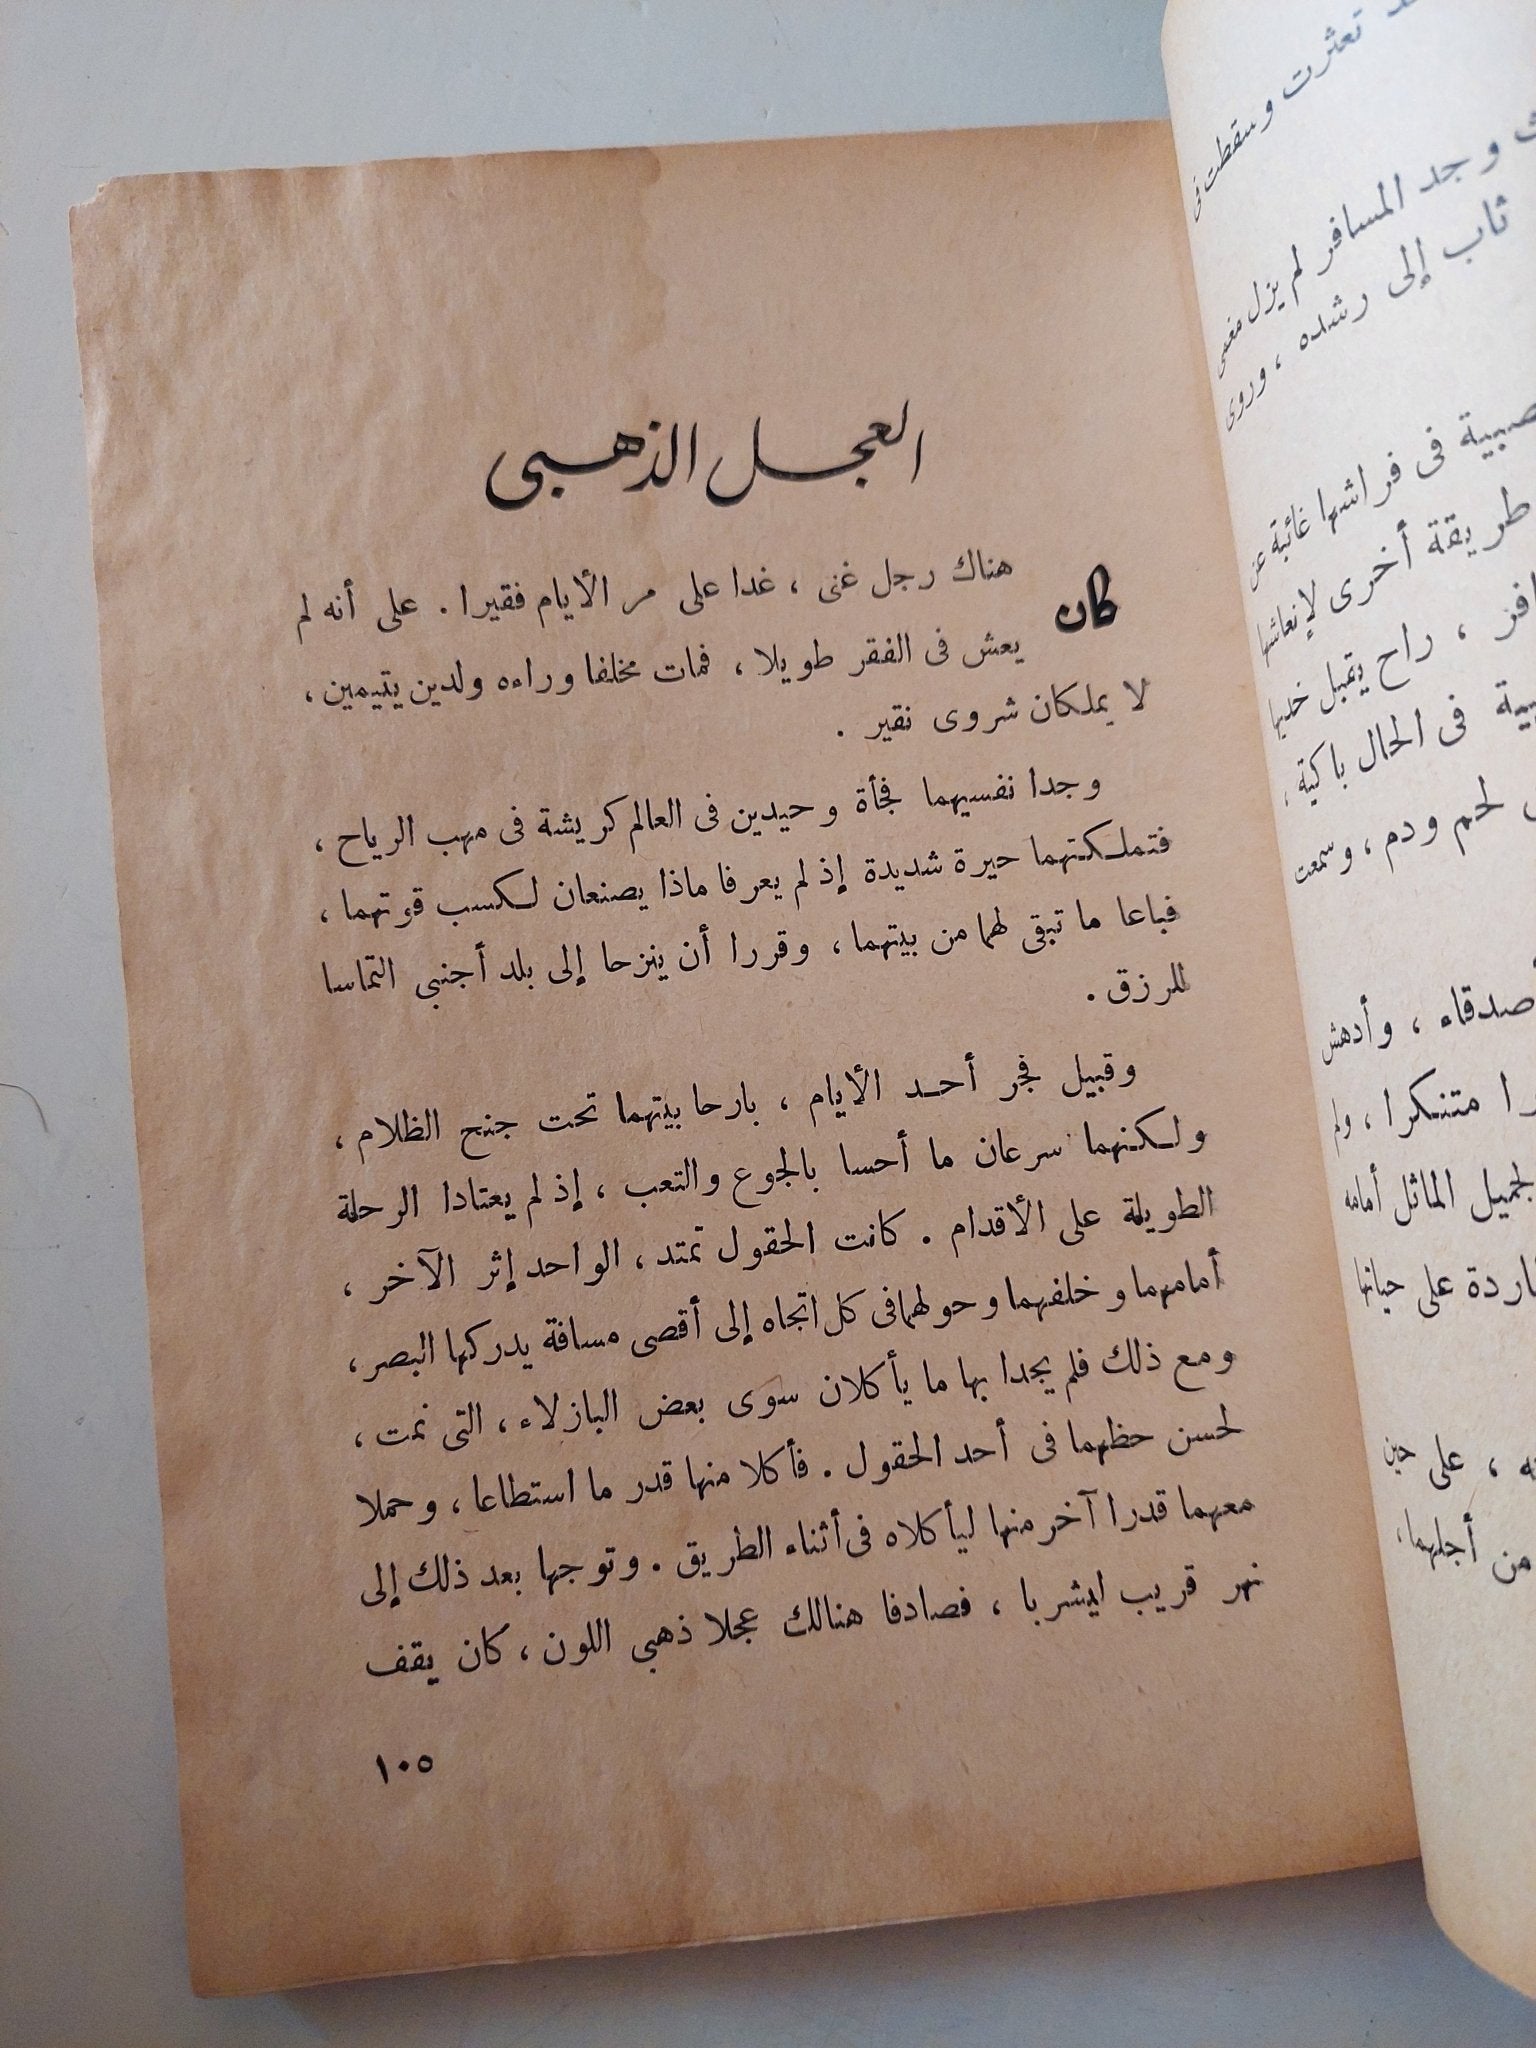 العجل الذهبى
كان هناك رجل غنى ، غدا على مر الأيام فقيرا . على أنه لم
يعش فى الفقر طويلا ، فمات مخلفا وراءه ولدين يتيمين ،
لا يملكان شروى نقير .
وجدا نفسيهما فجأة وحيدين فى العالم كريشة فى مهب الرياح ،
فتملكتهما حيرة شديدة إذ لم يعرفا ماذا يصنعان لكسب قوتهما ،
فباعا ما تبقى لهما من بيتهما ، وقررا أن ينزحا إلى بلد أجنبى التماسا
للرزق .
وقبيل فجر أحد الأيام ، بارحا بيتهما تحت جنح الظلام ،
ولكنهما سرعان ما أحسا بالجوع والتعب ، إذ لم يعتادا الرحلة
الطويلة على الأقدام . كانت الحقول تمتد ، الواحد إثر الآخر ،
أمامهما وخلفهما وحولهما فى كل اتجاه إلى أقصى مسافة يدركها البصر ،
ومع ذلك فلم يجدا بها ما يأكلان سوى بعض البازلاء ، التى نمت ،
لحسن حظهما فى أحد الحقول . فأكلا منها قدر ما استطاعا ، وحملا
معهما قدرا آخر منها ليأكلاه فى أثناء الطريق . وتوجها بعد ذلك إلى
نهر قريب ليشربا ، فصادفا هنالك عجلا ذهبى اللون ، كان يقف
١٠٥
تعثرت وسقطت فى
وجد المسافر لم يزل مغمى
ثاب إلى رشده ، وروى
فى فراشها غائبة عن
طريقة أخرى لإنعاشها
، راح يقبل خديها
فى الحال باكية ،
لحم ودم ، وسمعت
، وأدهش
متنكرا ، ولم
الماثل أمامه
على حياتها
، على حين
من أجلهما ،